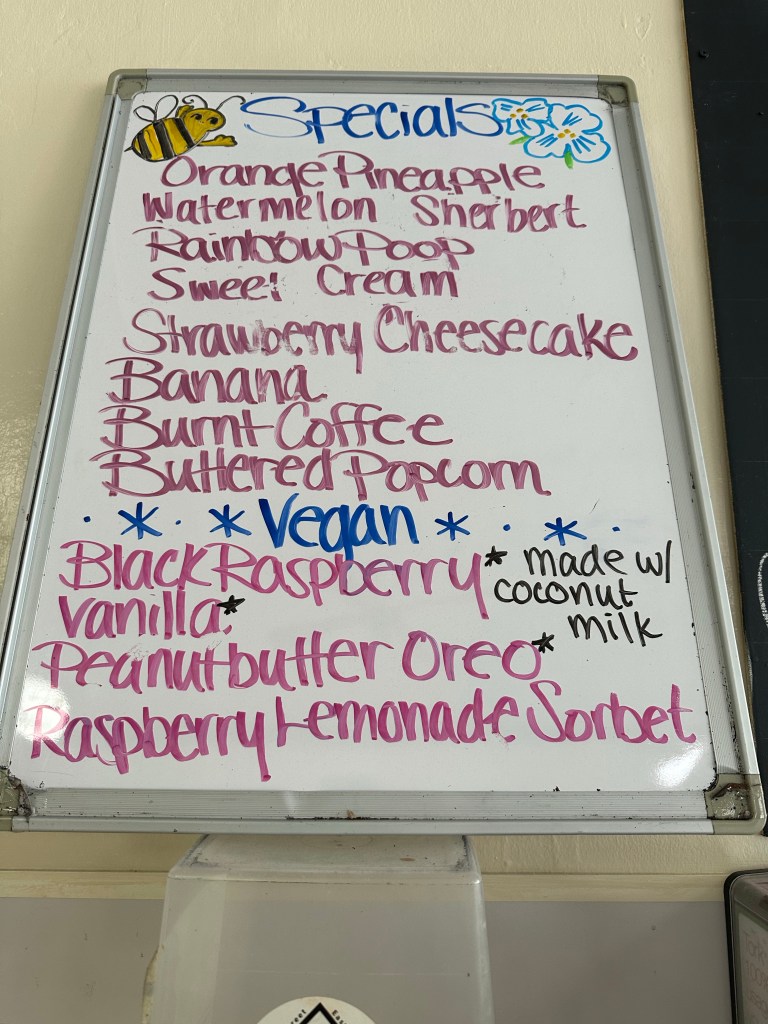 Specials
Orange Pineapple
Watermelon Sherbert
Rainbow Poop
Sweet Cream
Strawberry Cheesecake
Banana
Burnt Coffee
Buttered Popcorn
. * . * Vegan * . * .
Black Raspberry* made w/
coconut
Vanilla*
milk
Peanutbutter Oreo*
Raspberry Lemonade Sorbet